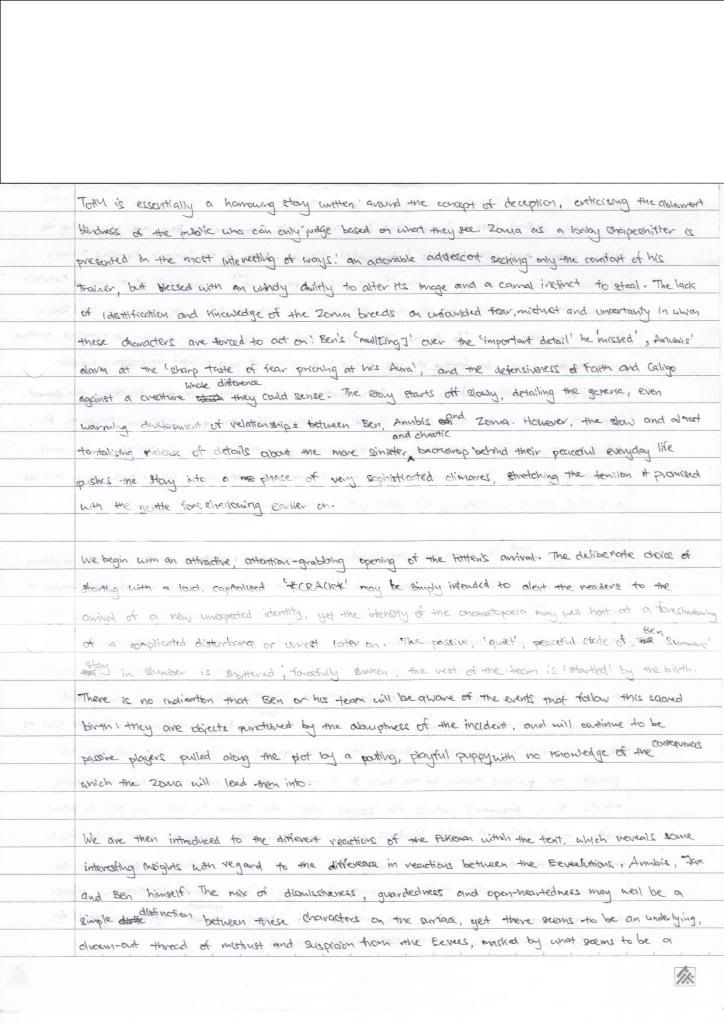 is essentially a harrowing story written around the concept of deception, criticising the
blindness of the public who can only judge based on what they see. Zorua as a baby shapeshifter is
presented in the most interesting of ways: an adorable adolescent seeking only the comfort of his
trainer, but blessed with an ability to alter its image and a carnal instinct to steal. The lack
of identification and knowledge of the Zorua breeds an unfounded fear, mistrust and uncertainty in which
these characters are forced to act on: Ben's 'mull[ing]' over the 'important detail' he 'missed', Anubis'
alarm at the 'sharp taste of fear pricking at his Aura', and the defensiveness of Faith and Caligo
against a creature whose difference they could sense. The story starts off slowly, detailing the generic, even
warming development of relationships between Ben, Anubis and Zorua. However, the slow and almost
tantalising release of details about the more sinister and chaotic backdrop behind their peaceful everyday life
pushes the story into a phase of very sophisticated climaxes, stretching the tension it promised
with the gentle foreshadowing earlier on.
We begin with an attractive, attention-grabbing opening of the arrival. The deliberate choice of
starting with a loud, capitalised '*CRACK*' may be simply intended to alert the readers to the
arrival of a new unexpected identity, yet the intensity of the onomatopoeia may well hint at a foreshadowing
of a complicated disturbance or unrest later on. The passive, 'quiet', peaceful state of Ben Summers'
stay in slumber is shattered; forcefully shaken, the rest of the team is 'startled' by the birth.
There is no indication that Ben or his team will be aware of the events that follow this sacred
birth: they are objects by the abruptness of the incident, and will continue to be
passive players pulled along the plot by a playful puppy with no knowledge of the consequences
which the Zorua will lead them into.
We are then introduced to the different reactions of the Pokemon within the tent, which reveals some
interesting insights with regard to the difference in reactions between the Eeveelutions, Anubis, Jax
and Ben himself. The mix of dismissiveness, guardedness and open-heartedness may well be a
simple distinction between these characters on the surface, yet there seems to be an underlying,
drawn-out thread of mistrust and suspicion from the Eevees, marked by what seems to be a